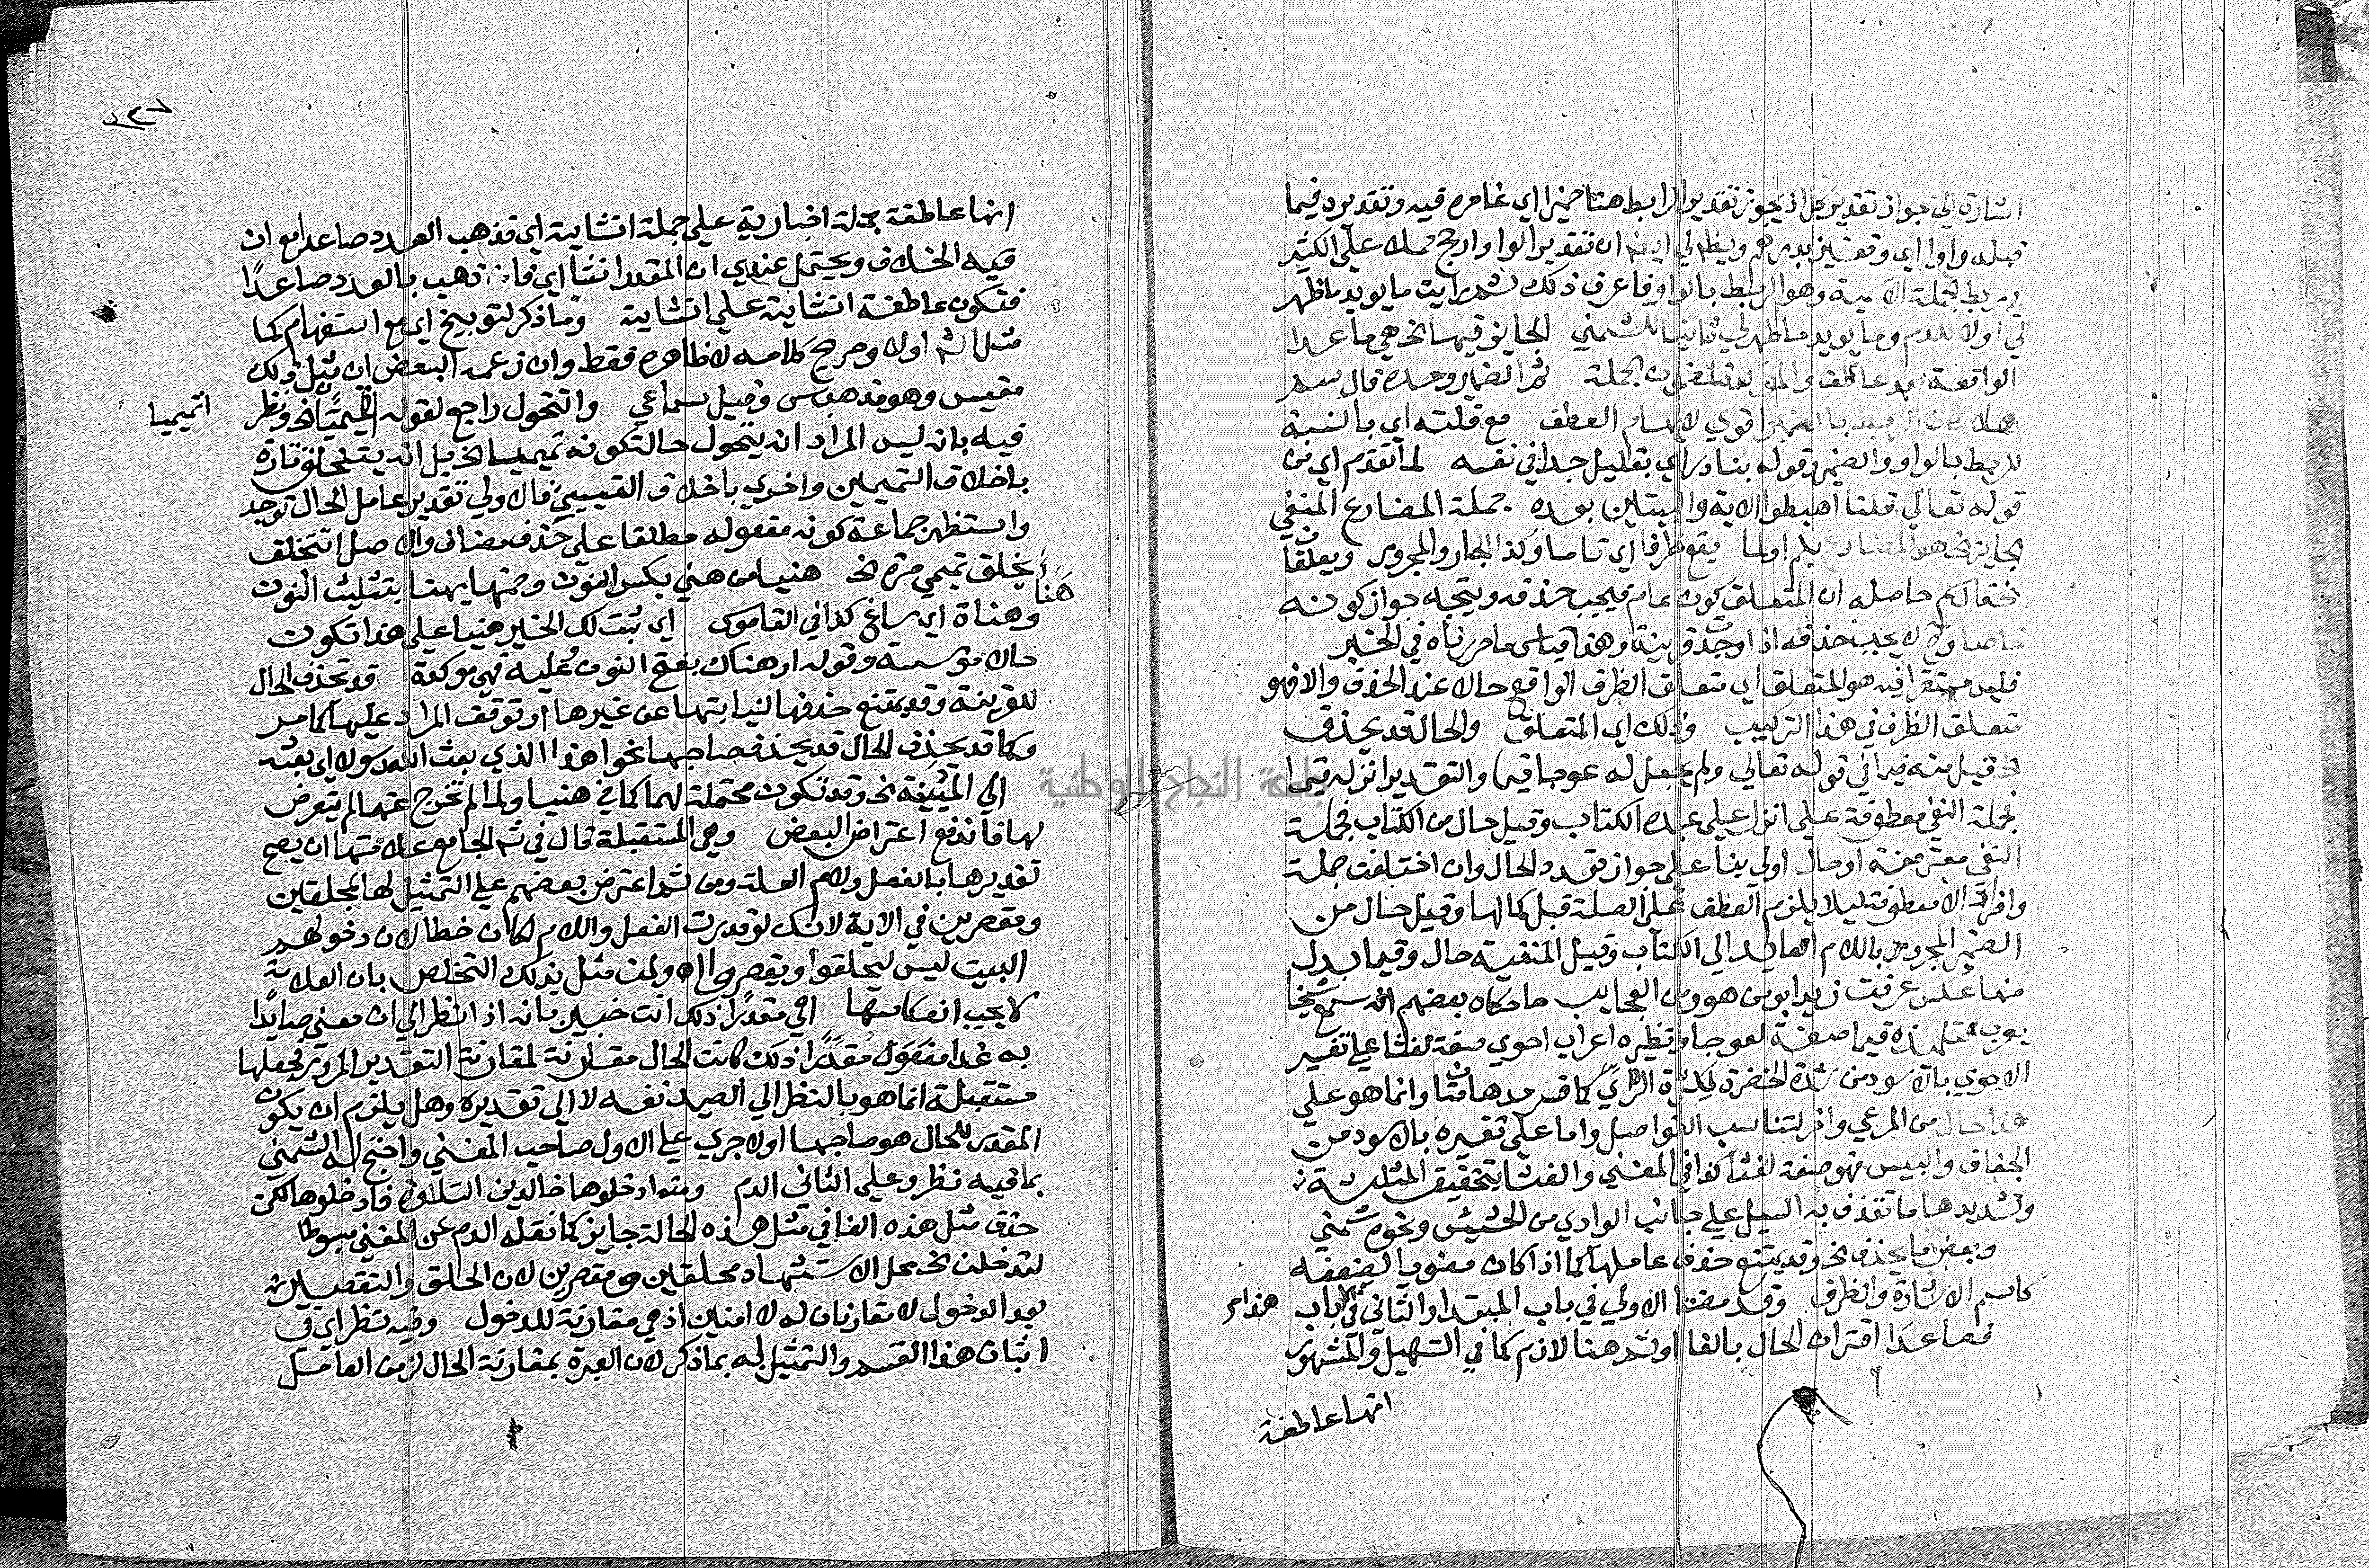 اشارة الى جواز تقدير كل اذ يجوز تقدير الرابط هنا ضميرا اي غامره فيه وتقديره فيما
قبله واوا اي وقفيز بدرهم ويظهر لي ايضا ان تقدير الواو ارجح حملا على الكثير
في ربط الجملة الاسمية وهو الربط بالواو فاعرف ذلك ثم رايت ما يويد ما ظهر
لي اولا للدم وما يويد ما ظهر لي ثانيا للشمني الجايز فيها الخ هي ما عدا
الواقعة بعد عاطف والموكدة لمضمون الجملة ثم الضمير وحده قال سم
هلا كان الربط بالضمير اقوى لايهام العطف مع قلته اي بالنسبة
للربط بالواو والضمير وقوله بنادر اي بقليل جدا في نفسه لما تقدم اي من
قوله تعالى قلنا اهبطوا الاية والبيتين بعده جملة المضارع المنفي
الجايز الخ هو المضارع بلم او لما يقع ظرفا اي تاما وكذا الجار والمجرور ويعلقا
الخ قال كم حاصله ان المتعلق كون عام فيجب حذفه ويتجه جواز كونه
خاصا ولا يجب حذفه اذا وجدت قرينة وهذا قياس ما حررناه في الخبر
فليس مستقرا فيه هو المتعلق اي متعلق الظرف الواقع حالا عند الحذف والا فهو
متعلق الظرف في هذا التركيب وذلك اي المتعلق والحال قد يحذف
الخ قيل منه قيما في قوله تعالى ولم يجعل له عوجا قيما والتقدير انزله قيما
فجملة النفي معطوفة على انزل على عبده الكتاب وقيل حال من الكتاب فجملة
النفي معترضة او حال اولى بناء على جواز تعدد الحال وان اختلفت جملة
وافرادا لا معطوفة ليلا يلزم العطف على الصلة قبل كمالها وقيل حال من
الضمير المجرور باللام العايد الى الكتاب وقيل المنفية حال وقيما بدل
منها عكس عرفت زيدا ابو من هو ومن العجايب ما حكاه بعضهم انه سمع شيخا
يعرب لتلميذه قيما صفة لعوجا ونظيره اعراب احوى صفة لغثا على تفسير
الاحوى بالاسود من شدة الخضرة لكثرة الري كما فسر مدهامتان وانما هو على
هذا حال من المرعى واخر لتناسب الفواصل واما على تفسيره بالاسود من
الجفاف واليبس فهو صفة لغثا كذا في المغني والغثا بتخفيف المثلثة
وتشديدها ما تقذف به السيل على جانب الوادي من الحشيش ونحوه شمني
وبعض ما يحذف الخ وقد يمتنع حذف عاملها كما اذا كان معنويا لضعفه
كاسم الاشارة والظرف وقد مضتا الاولى في باب المبتدا والثاني في باب
هذا
فصاعدا اقتران الحال بالفا او ثم هنا لازم كما في التسهيل والمشهور
انها عاطفة
١٢٧
انها عاطفة جملة اخبارية على جملة انشاية اي فذهب العدد صاعدا مع ان
فيه الخلاف ويحتمل عندي ان المقدر انشا اي فاذهب بالعدد صاعدا
فتكون عاطفة انشاية على انشاية وما ذكر لتوبيخ اي مع استفهام كما
مثل الشارح اولا وصريح كلامه لا ظاهره فقط وان زعمه البعض ان مثل ذلك
مقيس وهو مذهب س وقيل سماعي والتحول راجع لقوله اتميميا الخ ونظر
اتميميا
فيه بانه ليس المراد انه يتحول حالة كونه تميميا الخ بل انه يتخلق تارة
باخلاق التميميين واخرى باخلاق القيسيين فالاولى تقدير عامل الحال توجد
واستظهر جماعة كونه مفعوله مطلقا على حذف مضاف والاصل اتتخلق
تخلق تميمي مرة الخ هنيا من هني بكسر النون وضمها يهنا بتثليث النون
هنأ
وهناة اي ساغ كذا في القاموس اي ثبت لك الخير هنيا على هذا تكون
حالا موسسة وقوله او هناك بفتح النون وعليه فهي موكدة قد تحذف الحال
للقرينة وقد يمتنع حذفها لنيابتها عن غيرها او توقف المراد عليها كما مر
وكما قد يحذف الحال قد يحذف صاحبها نحو اهذا الذي بعث الله رسولا اي بعثه
الى المبينة الخ وقد تكون محتملة لهما كما في هنيا ولما لم تخرج عنهما لم يتعرض
لها فاندفع اعتراض البعض وهي المستقبلة قال في شرح الجامع علامتها ان يصح
تقديرها بالفعل ولام العلة ومن ثم اعترض بعضهم على التمثيل لها بمحلقين
ومقصرين في الاية لانك لو قدرت الفعل واللام لكان خطا لان دخولهم
البيت ليس ليحلقوا ويقصروا اه ولمن مثل بذلك التخلص بان العلامة
لا يجب انعكاسها اي مقدرا ذلك انت خبير بانه اذا نظر الى ان معنى صايدا
به غدا مفعول مقدرا ذلك كانت الحال مقارنة لمقارنة التقدير المرور فجعلها
مستقبلة انما هو بالنظر الى الصيد نفسه لا الى تقديره وهل يلزم ان يكون
المقدر للحال هو صاحبها اولا جرى على الاول صاحب المغني واحتج له الشمني
بما فيه نظر وعلى الثاني الدم ومنه ادخلوها خالدين التلاوة فادخلوها لكن
حذف مثل هذه الفا في مثل هذه الحالة جايز كما نقله الدم عن المغني مبسوطا
لتدخلن الخ محل الاستشهاد محلقين ومقصرين لان الحلق والتقصير
بعد الدخول لا مقارنان له لا امنين اذ هي مقارنة للدخول وفيه نظر اي في
اثبات هذا القسم والتمثيل له بما ذكر لان العبرة بمقارنة الحال لزمن العامل